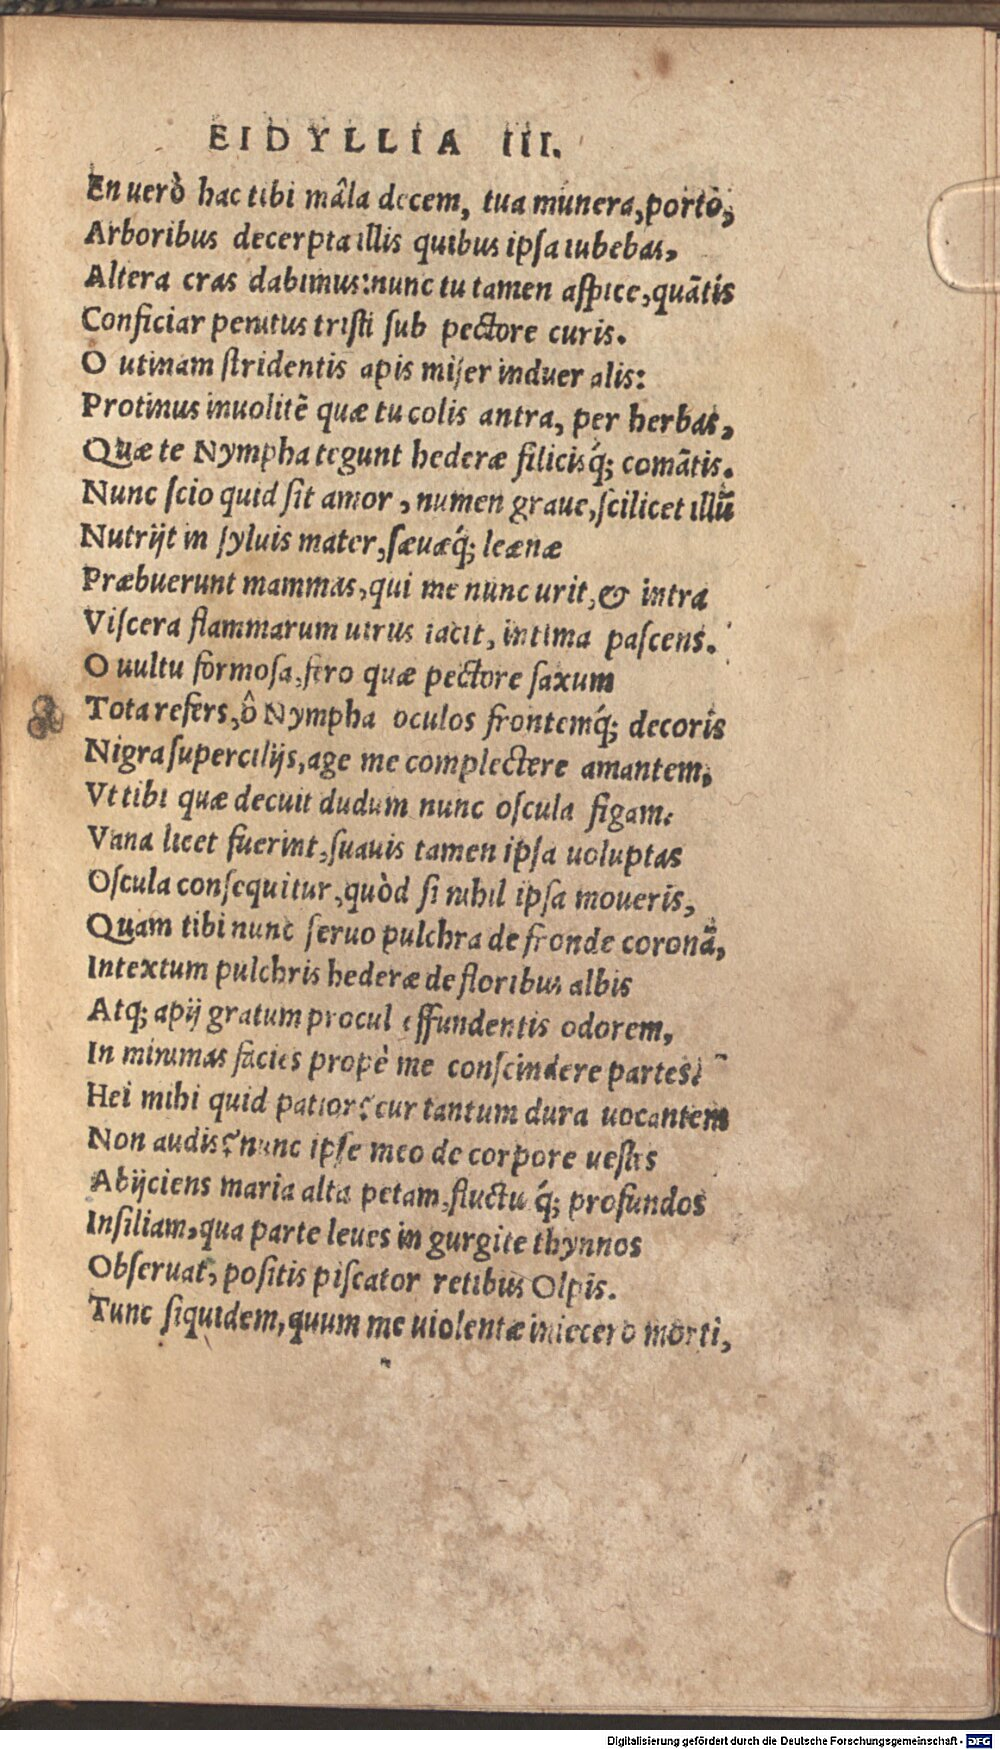 EIDYLLIA III.
En uerò hac tibi mâla decem, tua munera, porto,
Arboribus decerpta illis quibus ipsa iubebas,
Altera cras dabimus: nunc tu tamen aspice, quātis
Conficiar penitus tristi sub pectore curis.
O utinam stridentis apis miser induer alis:
Protinus inuolitē quæ tu colis antra, per herbas,
Quæ te Nympha tegunt hederæ filicisq́; comātis.
Nunc scio quid sit amor, numen graue, scilicet illū
Nutrijt in syluis mater, sæuæq́; leænæ
Præbuerunt mammas, qui me nunc urit, & intra
Viscera flammarum uirus iacit, intima pascens.
O uultu formosa, fero quæ pectore saxum
Tota refers, ô Nympha oculos frontemq́; decoris
Nigra supercilijs, age me complectere amantem,
Vt tibi quæ decuit dudum nunc oscula figam.
Vana licet fuerint, suauis tamen ipsa uoluptas
Oscula consequitur, quòd si nihil ipsa moueris,
Quam tibi nunc seruo pulchra de fronde coronā,
Intextum pulchris hederæ de floribus albis
Atq; apij gratum procul effundentis odorem,
In minimas facies propè me conscindere partes?
Hei mihi quid patior? cur tantum dura uocantem
Non audis? nunc ipse meo de corpore uestes
Abijciens maria alta petam, fluctu q́; profundos
Insiliam, qua parte leues in gurgite thynnos
Obseruat, positis piscator retibus Olpis.
Tunc siquidem, quum me uiolentæ iniecero morti,
Digitalisierung gefördert durch die Deutsche Forschungsgemeinschaft - DFG